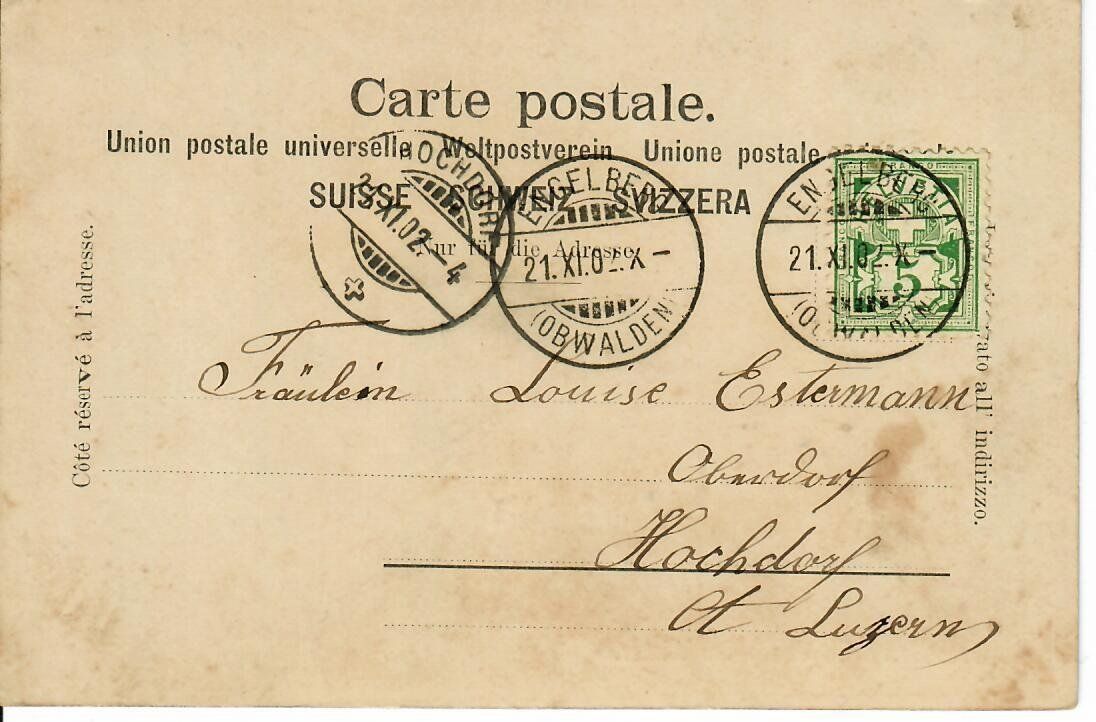 Carte postale.
Union postale universelle Weltpostverein Unione postale
SUISSE SCHWEIZ SVIZZERA
Nur für die Adresse
HOCHDORF
XI.02.-4
ENGELBERG
21.XI.02.X-
(OBWALDEN)
ENGELBERG
21.XI.02.X-
(OBWALDEN)
5
Côté réservé à l'adresse.
all' indirizzo.
Fräulein Louise Estermann
Oberdorf
Hochdorf
Ct Luzern